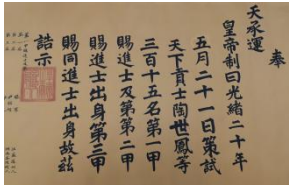 奉
天承運
皇帝制曰光緒二十年
五月二十一日策試
天下貢士陶世鳳等
三百十五名第一甲
賜進士及第第二甲
賜進士出身第三甲
賜同進士出身故茲
誥示